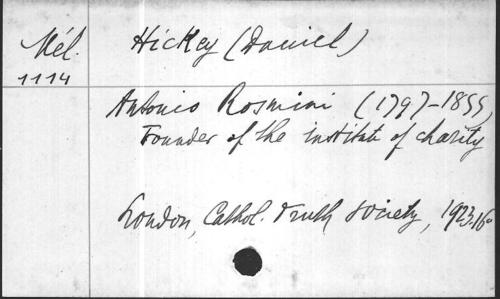 Mél.
1114
Hickey (Daniel)
Antonio Rosmini (1797-1855)
Founder of the institute of charity
London, Cathol. Truth society, 1923.16°